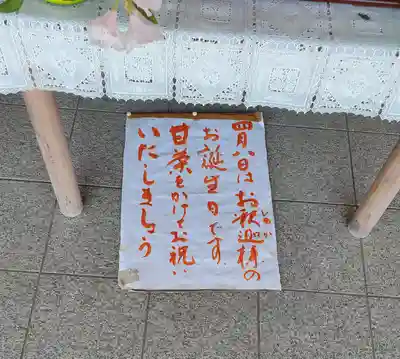 四月八日はお釈迦様の
お誕生日です
甘茶をかけてお祝い
いたしましょう